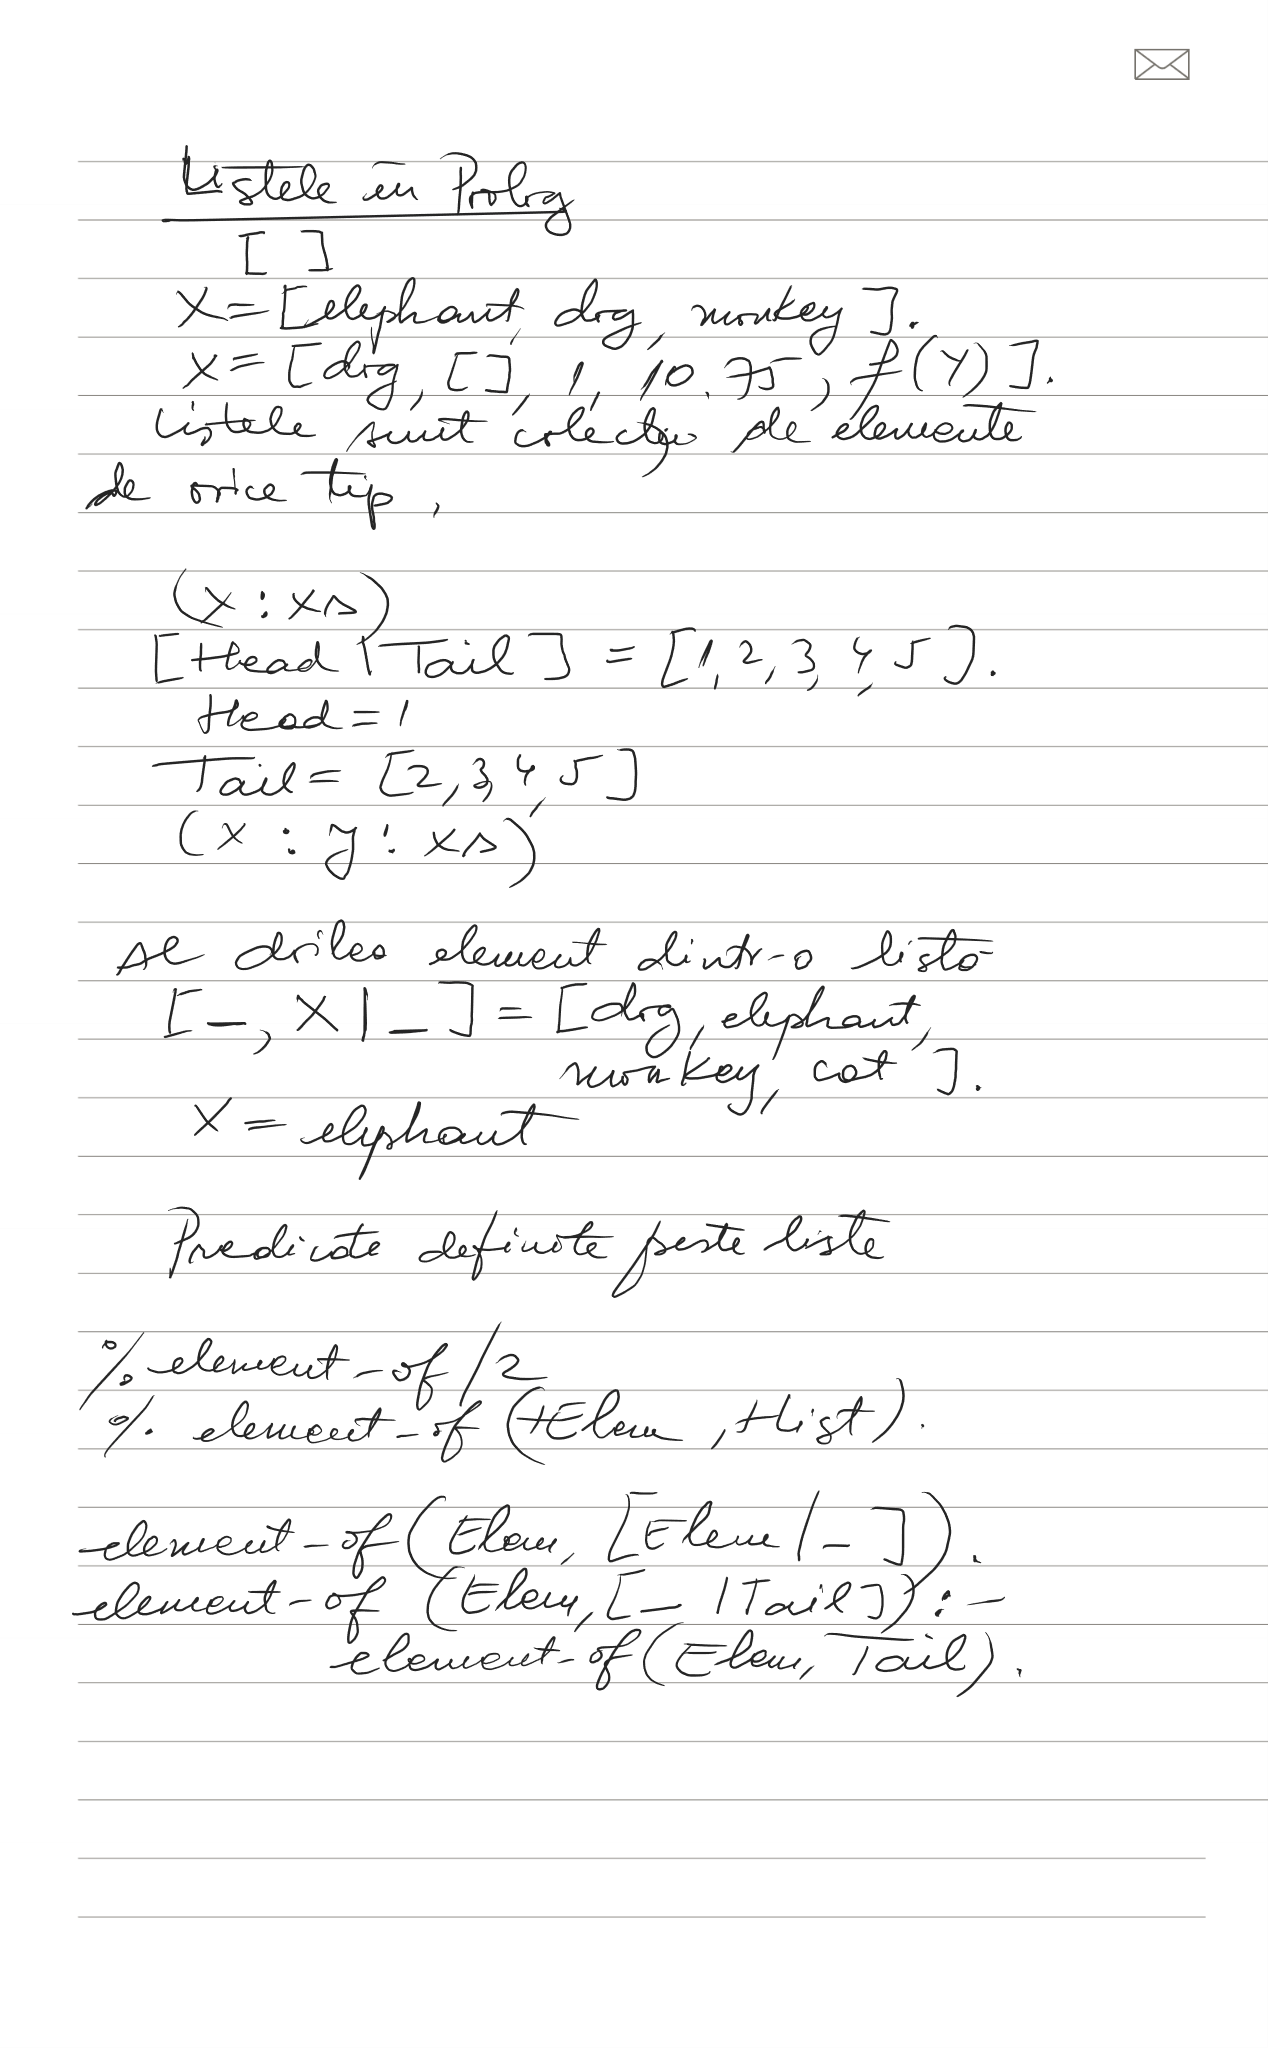 Listele în Prolog
[ ]
X = [elephant, dog, monkey].
X = [dog, [], 1, 10.75, f(Y)].
Listele sunt colecții de elemente
de orice tip.
(x : xs)
[Head | Tail] = [1, 2, 3, 4, 5].
Head = 1
Tail = [2, 3, 4, 5]
(x : y : xs)
Al doilea element dintr-o listă
[_, X | _] = [dog, elephant,
monkey, cat].
X = elephant
Predicate definite peste liste
% element_of/2
% element_of(+Elem, +List).
element_of(Elem, [Elem | _]).
element_of(Elem, [_ | Tail]) :-
element_of(Elem, Tail).